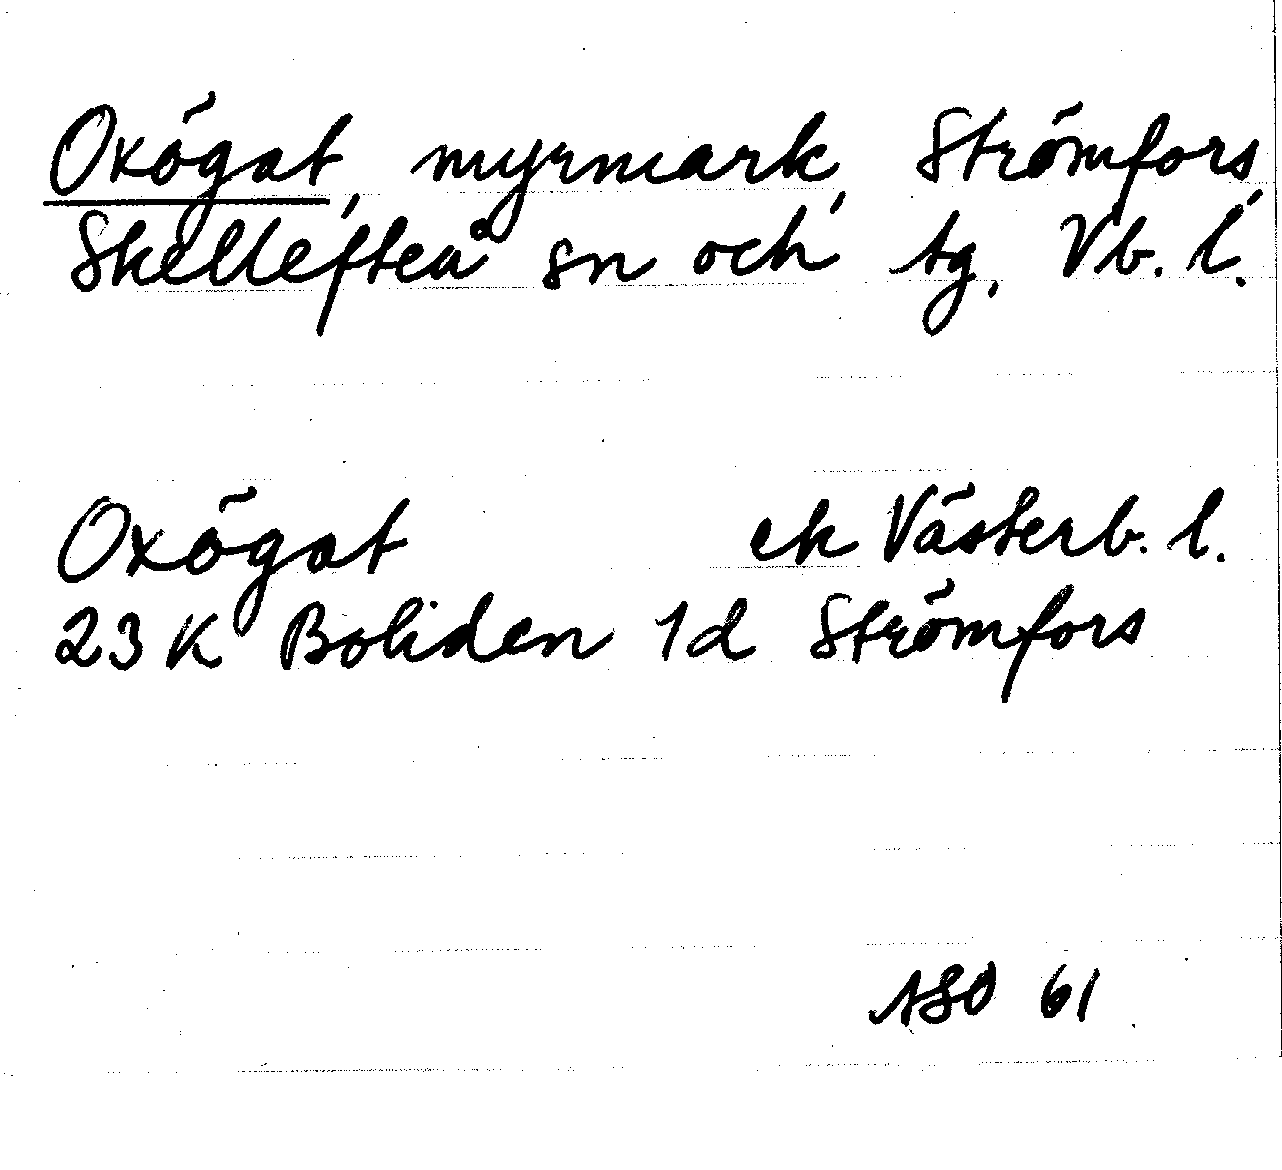 Oxögat, myrmark, Strömfors,
Skellefteå sn och tg, Vb. l.
Oxögat ek Västerb. l.
23 K Boliden 1d Strömfors
ASO 61